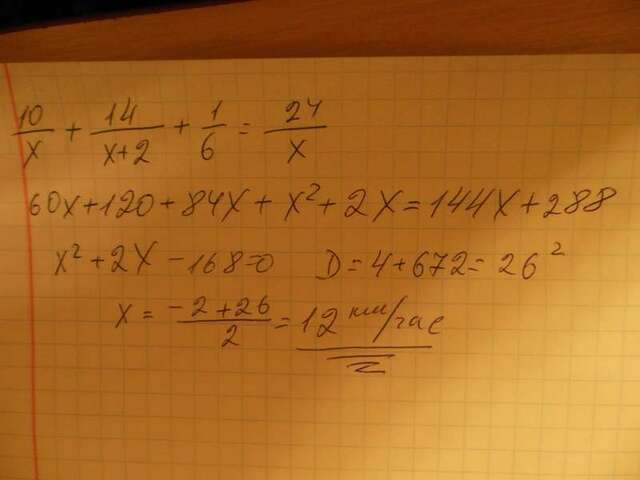 10/x + 14/(x+2) + 1/6 = 24/x
60x+120+84x+x²+2x=144x+288
x²+2x-168=0 D=4+672=26²
x = (-2+26)/2 = 12 км/час